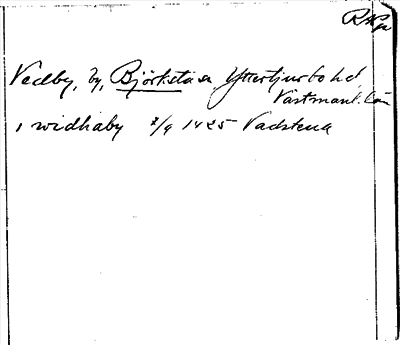 RAp
Vedby, by, Björksta sn Yttertjurbo hd,
Västmanl. län
i widhaby 2/9 1425 Vadstena